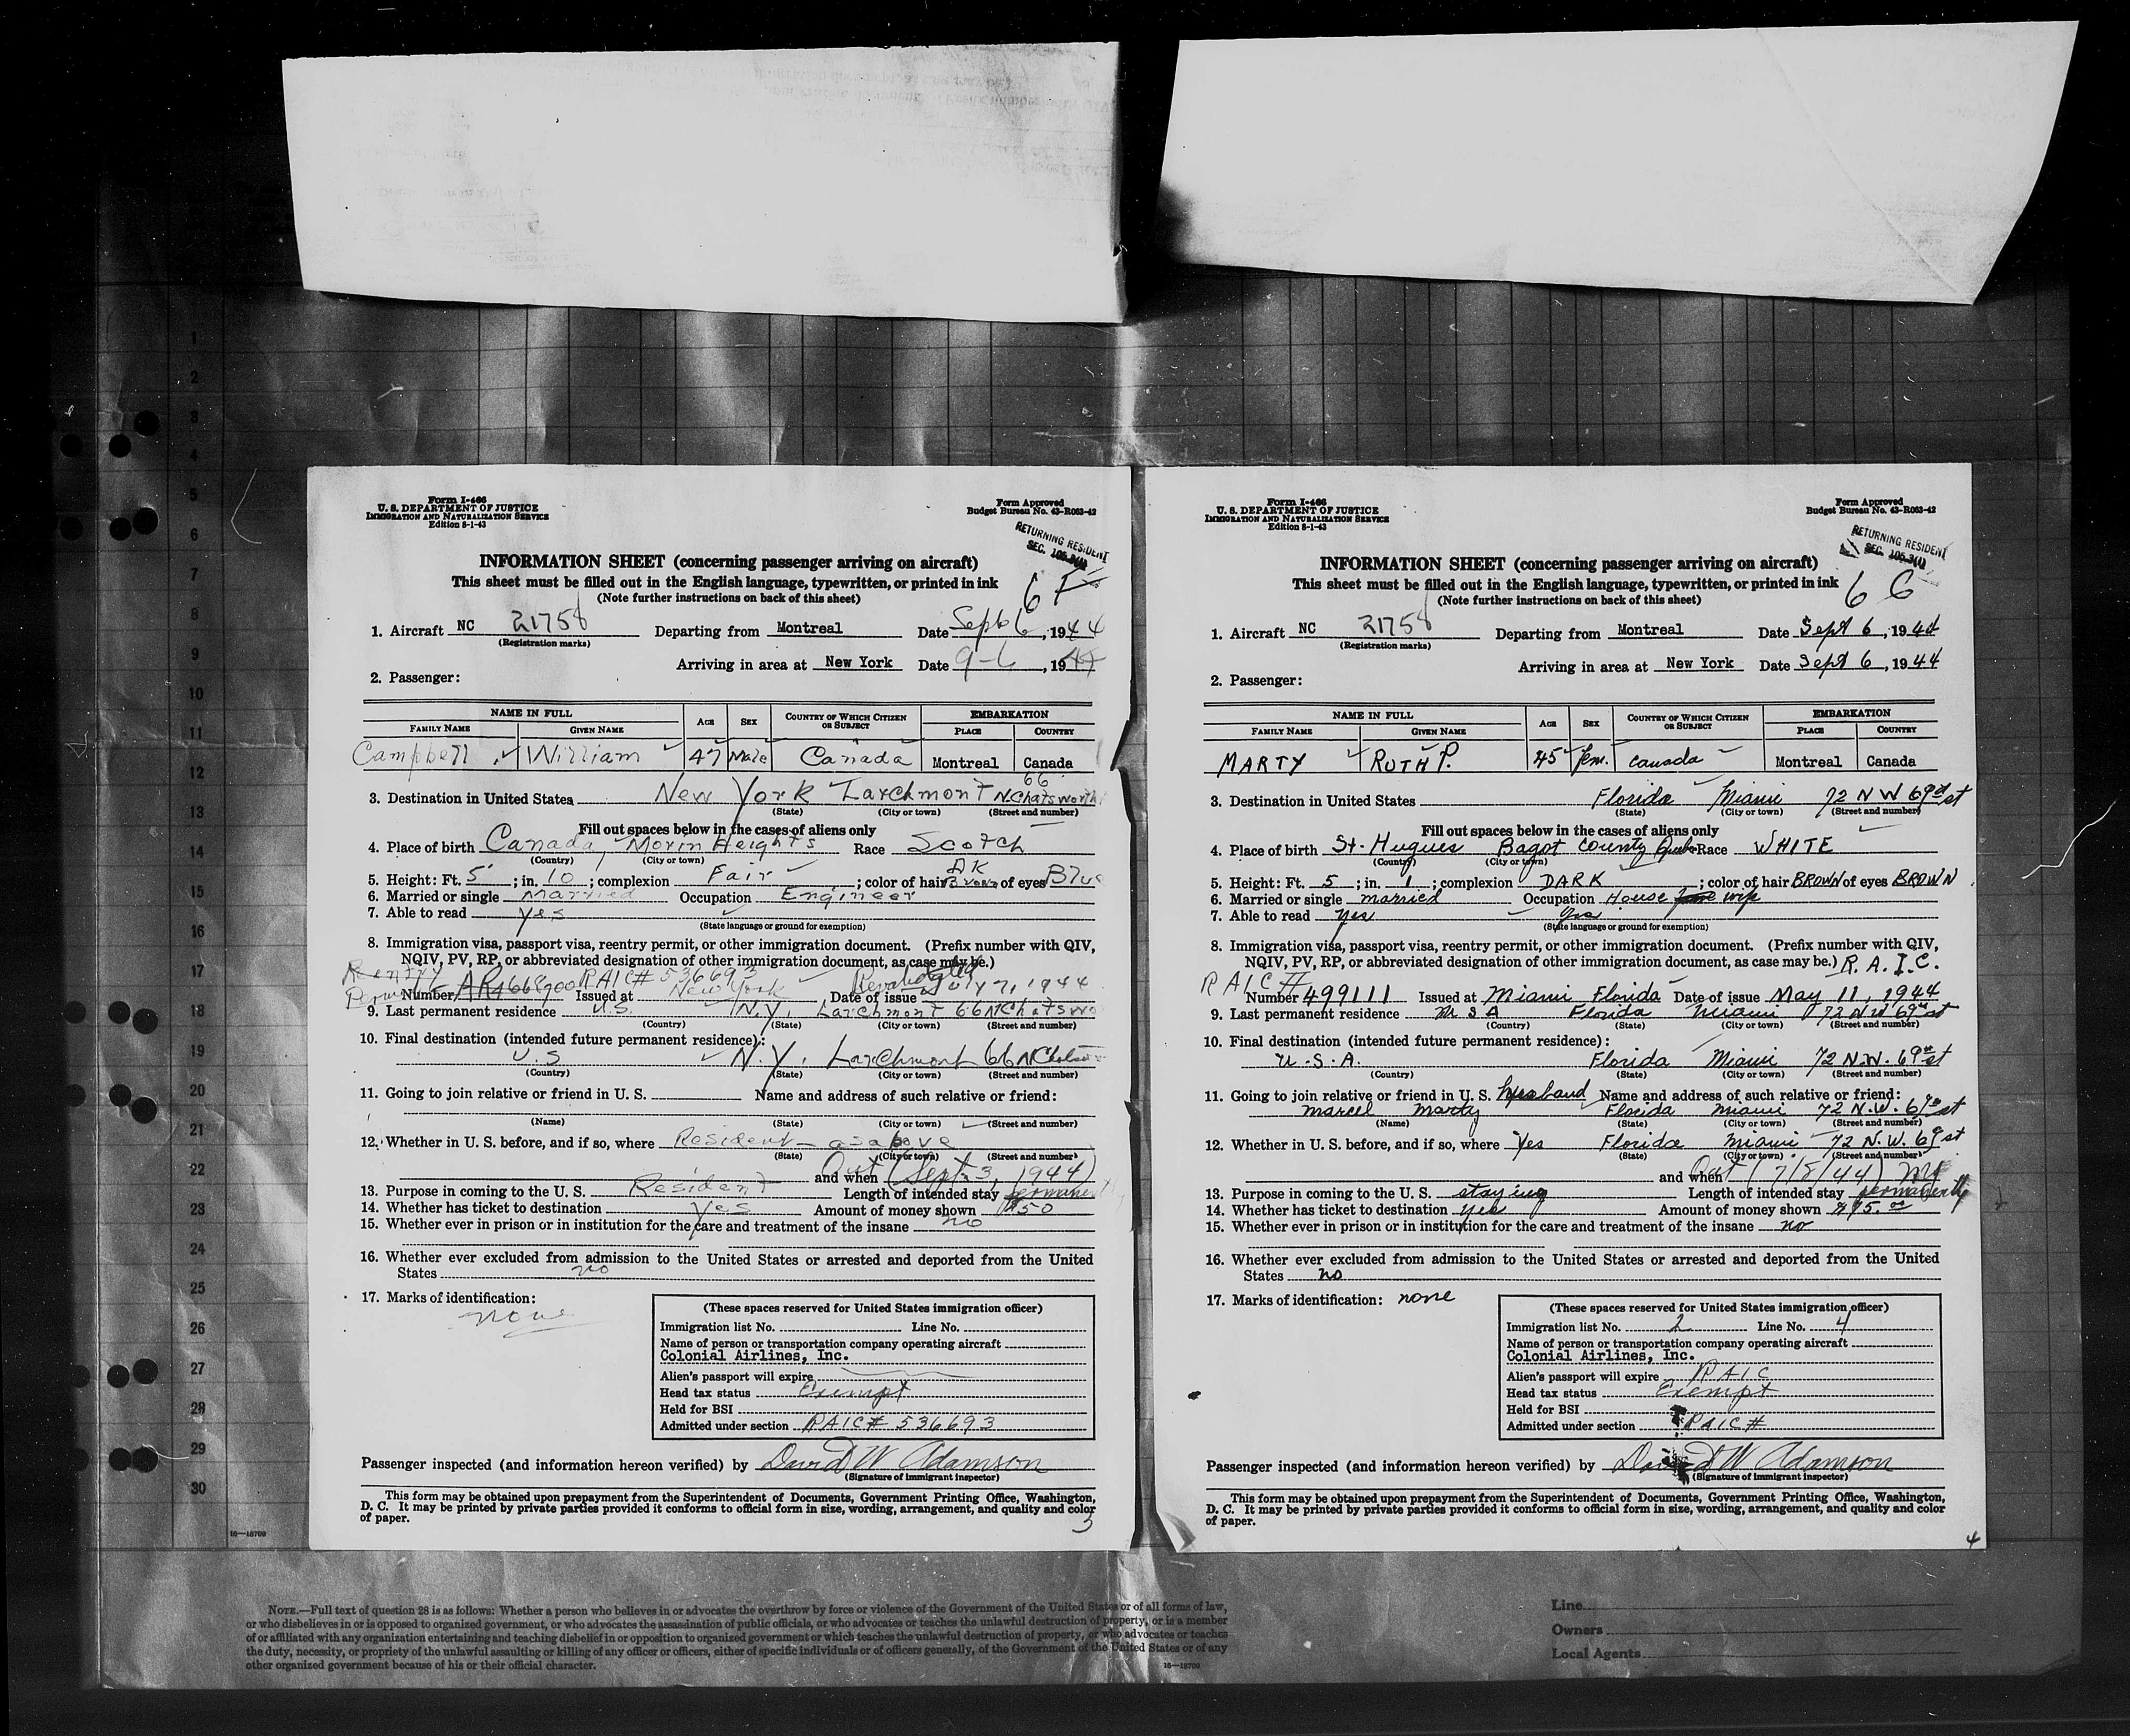 Form I-466
U. S. DEPARTMENT OF JUSTICE
IMMIGRATION AND NATURALIZATION SERVICE
Edition 8-1-43
Form Approved
Budget Bureau No. 43-R063-42
RETURNING RESIDENT
SEC.
INFORMATION SHEET (concerning passenger arriving on aircraft)
This sheet must be filled out in the English language, typewritten, or printed in ink
(Note further instructions on back of this sheet)
1. Aircraft NC 21758 Departing from Montreal Date Sept 6, 1944
(Registration marks)
Arriving in area at New York Date 9-6, 1944
2. Passenger:
NAME IN FULL AGE SEX COUNTRY OF WHICH CITIZEN OR SUBJECT EMBARKATION
FAMILY NAME GIVEN NAME PLACE COUNTRY
Campbell William 47 Male Canada Montreal Canada
3. Destination in United States New York Larchmont 66 N. Chatsworth
(State) (City or town) (Street and number)
Fill out spaces below in the cases of aliens only
4. Place of birth Canada, Morin Heights Race Scotch
(Country) (City or town)
5. Height: Ft. 5 ; in. 10 ; complexion Fair ; color of hair DK Brown of eyes Blue
6. Married or single Married Occupation Engineer
7. Able to read yes
(State language or ground for exemption)
8. Immigration visa, passport visa, reentry permit, or other immigration document. (Prefix number with QIV,
NQIV, PV, RP, or abbreviated designation of other immigration document, as case may be.)
Reentry Permit Number RAIC# 536693 Issued at New York Date of issue July 7, 1944
9. Last permanent residence U.S. N.Y. Larchmont 66 N Chatswo
(Country) (State) (City or town) (Street and number)
10. Final destination (intended future permanent residence):
U.S N.Y. Larchmont 66 N
(Country) (State) (City or town) (Street and number)
11. Going to join relative or friend in U. S. Name and address of such relative or friend:
(Name) (State) (City or town) (Street and number)
12. Whether in U. S. before, and if so, where Resident - as above
(State) (City or town) (Street and number)
and when Out (Sept. 3, 1944)
13. Purpose in coming to the U. S. Resident Length of intended stay permanent
14. Whether has ticket to destination Yes Amount of money shown $50
15. Whether ever in prison or in institution for the care and treatment of the insane no
16. Whether ever excluded from admission to the United States or arrested and deported from the United
States no
17. Marks of identification: none
(These spaces reserved for United States immigration officer)
Immigration list No. Line No.
Name of person or transportation company operating aircraft
Colonial Airlines, Inc.
Alien's passport will expire
Head tax status Exempt
Held for BSI
Admitted under section RAIC# 536693
Passenger inspected (and information hereon verified) by David W Adamson
(Signature of immigrant inspector)
This form may be obtained upon prepayment from the Superintendent of Documents, Government Printing Office, Washington,
D. C. It may be printed by private parties provided it conforms to official form in size, wording, arrangement, and quality and color
of paper.
3
Form I-466
U. S. DEPARTMENT OF JUSTICE
IMMIGRATION AND NATURALIZATION SERVICE
Edition 8-1-43
Form Approved
Budget Bureau No. 43-R063-42
RETURNING RESIDENT
SEC.
INFORMATION SHEET (concerning passenger arriving on aircraft)
This sheet must be filled out in the English language, typewritten, or printed in ink
(Note further instructions on back of this sheet)
1. Aircraft NC 21758 Departing from Montreal Date Sept 6, 1944
(Registration marks)
Arriving in area at New York Date Sept 6, 1944
2. Passenger:
NAME IN FULL AGE SEX COUNTRY OF WHICH CITIZEN OR SUBJECT EMBARKATION
FAMILY NAME GIVEN NAME PLACE COUNTRY
MARTY RUTH P. 45 Fem. Canada Montreal Canada
3. Destination in United States Florida Miami 72 NW 69 st
(State) (City or town) (Street and number)
Fill out spaces below in the cases of aliens only
4. Place of birth St. Hugues Bagot County Race WHITE
(Country) (City or town)
5. Height: Ft. 5 ; in. 1 ; complexion DARK ; color of hair BROWN of eyes BROWN
6. Married or single married Occupation House wife
7. Able to read yes yes
(State language or ground for exemption)
8. Immigration visa, passport visa, reentry permit, or other immigration document. (Prefix number with QIV,
NQIV, PV, RP, or abbreviated designation of other immigration document, as case may be.) R. A. I. C.
RAIC # Number 499111 Issued at Miami Florida Date of issue May 11, 1944
9. Last permanent residence U S A Florida Miami 72 N W 69th st
(Country) (State) (City or town) (Street and number)
10. Final destination (intended future permanent residence):
U.S.A. Florida Miami 72 N.W. 69th st
(Country) (State) (City or town) (Street and number)
11. Going to join relative or friend in U. S. husband Name and address of such relative or friend:
Marcel Marty Florida Miami 72 N.W. 69th st
(Name) (State) (City or town) (Street and number)
12. Whether in U. S. before, and if so, where Yes Florida Miami 72 N.W. 69 st
(State) (City or town) (Street and number)
and when Out (7/8/44)
13. Purpose in coming to the U. S. staying Length of intended stay permanently
14. Whether has ticket to destination yes Amount of money shown $75.00
15. Whether ever in prison or in institution for the care and treatment of the insane no
16. Whether ever excluded from admission to the United States or arrested and deported from the United
States no
17. Marks of identification: none
(These spaces reserved for United States immigration officer)
Immigration list No. 2 Line No. 4
Name of person or transportation company operating aircraft
Colonial Airlines, Inc.
Alien's passport will expire RAIC
Head tax status Exempt
Held for BSI
Admitted under section RAIC#
Passenger inspected (and information hereon verified) by David W Adamson
(Signature of immigrant inspector)
This form may be obtained upon prepayment from the Superintendent of Documents, Government Printing Office, Washington,
D. C. It may be printed by private parties provided it conforms to official form in size, wording, arrangement, and quality and color
of paper.
4
1
2
3
4
5
6
7
8
9
10
11
12
13
14
15
16
17
18
19
20
21
22
23
24
25
26
27
28
29
30
16—18709
NOTE.—Full text of question 28 is as follows: Whether a person who believes in or advocates the overthrow by force or violence of the Government of the United States or of all forms of law,
or who disbelieves in or is opposed to organized government, or who advocates the assassination of public officials, or who advocates or teaches the unlawful destruction of property, or is a member
of or affiliated with any organization entertaining and teaching disbelief in or opposition to organized government or which teaches the unlawful destruction of property, or who advocates or teaches
the duty, necessity, or propriety of the unlawful assaulting or killing of any officer or officers, either of specific individuals or of officers generally, of the Government of the United States or of any
other organized government because of his or their official character.
16—18709
Line
Owners
Local Agents